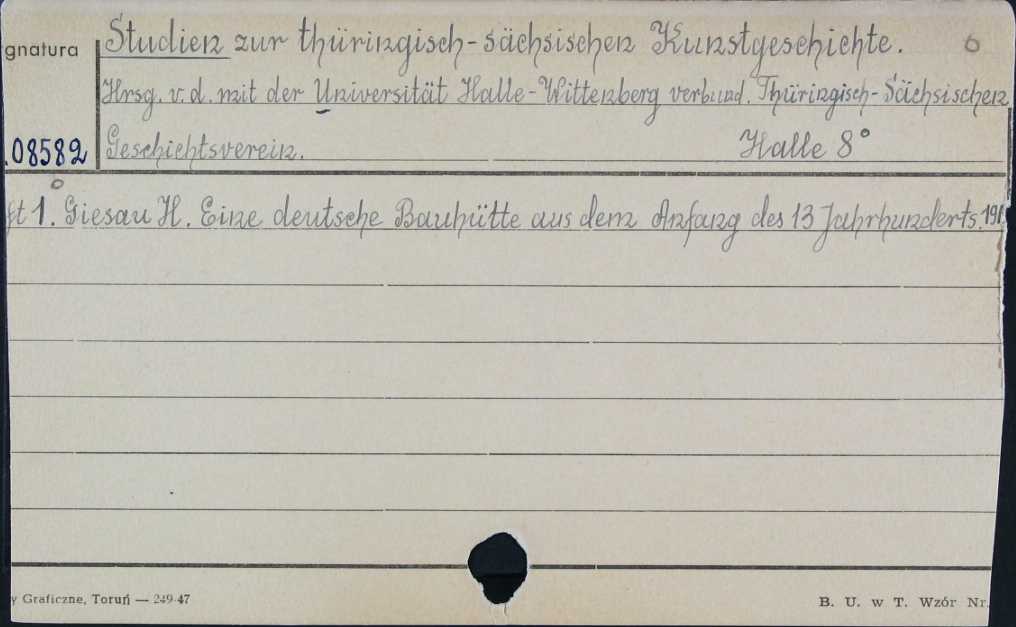 gnatura Studien zur thüringisch-sächsischen Kunstgeschichte. 6
Hrsg. v. d. mit der Universität Halle-Wittenberg verbund. Thüringisch-Sächsischen
.08582 Geschichtsverein. Halle 8°
ft 1. Giesau H. Eine deutsche Bauhütte aus dem Anfang des 13 Jahrhunderts. 191
y Graficzne, Toruń — 249-47
B. U. w T. Wzór Nr.